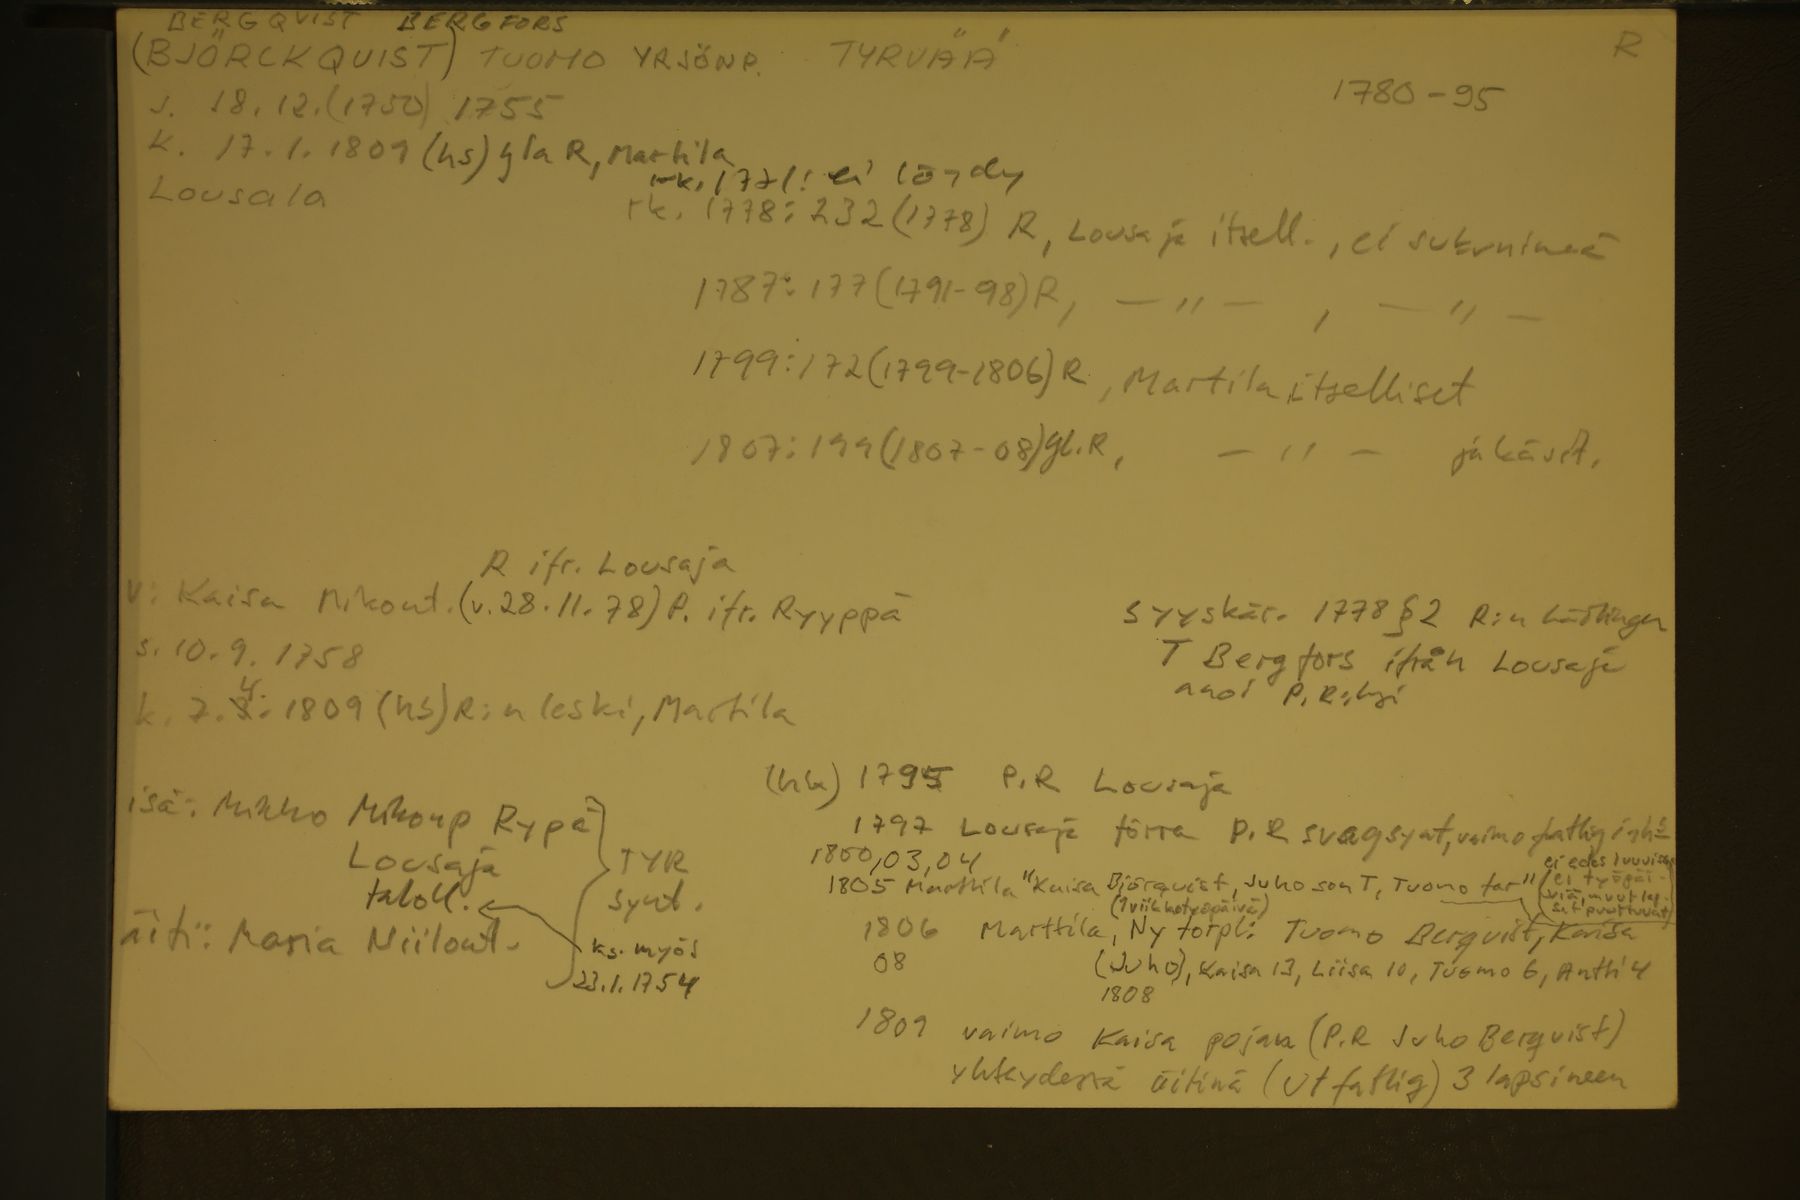 BERGQVIST BERGFORS
(BJÖRCKQUIST) TUOMO YRJÖNP. TYRVÄÄ R
1780-95
s. 18.12.(1750) 1755
k. 17.1.1809 (hs) gla R, Martila
Lousala
rk. 1771: ei löydy
rk. 1778: 232 (1778) R, Lousaja itsell., ei sukunimeä
1787: 177 (1791-98) R, —〃— , —〃—
1799: 172 (1799-1806) R, Martila itselliset
1807: 199 (1807-08) gl. R, —〃— ja käsit.
R ifr. Lousaja
V: Kaisa Mikont. (v. 28.11.78) P. ifr. Ryyppä
s. 10.9.1758
k. 7.4.1809 (hs) R:n leski, Martila
syyskär. 1778 § 2 R:n
T Bergfors ifrån Lousaja
anoi P.R:ksi
isä: Mikko Mikonp Rypä
Lousaja
taloll.
äiti: Maria Niilont.
TYR
synt.
ks. myös
23.1.1754
(hk) 1795 P.R Lousaja
1797 Lousaja förra P.R svagsynt, vaimo fattig
1800,03,04
1805 Marttila "Kaisa Björquist, Juho son T, Tuomo far"
(ei edes luvuissa
ei työpäi-
viä, muut lap-
set puuttuvat)
(1 viikkotyöpäivä)
1806 Marttila, Ny torpl: Tuomo Berqvist, Kaisa
08 (Juho), Kaisa 13, Liisa 10, Tuomo 6, Antti 4
1808
1809 vaimo Kaisa pojan (P.R Juho Berqvist)
yhteydessä äitinä (utfattig) 3 lapsineen